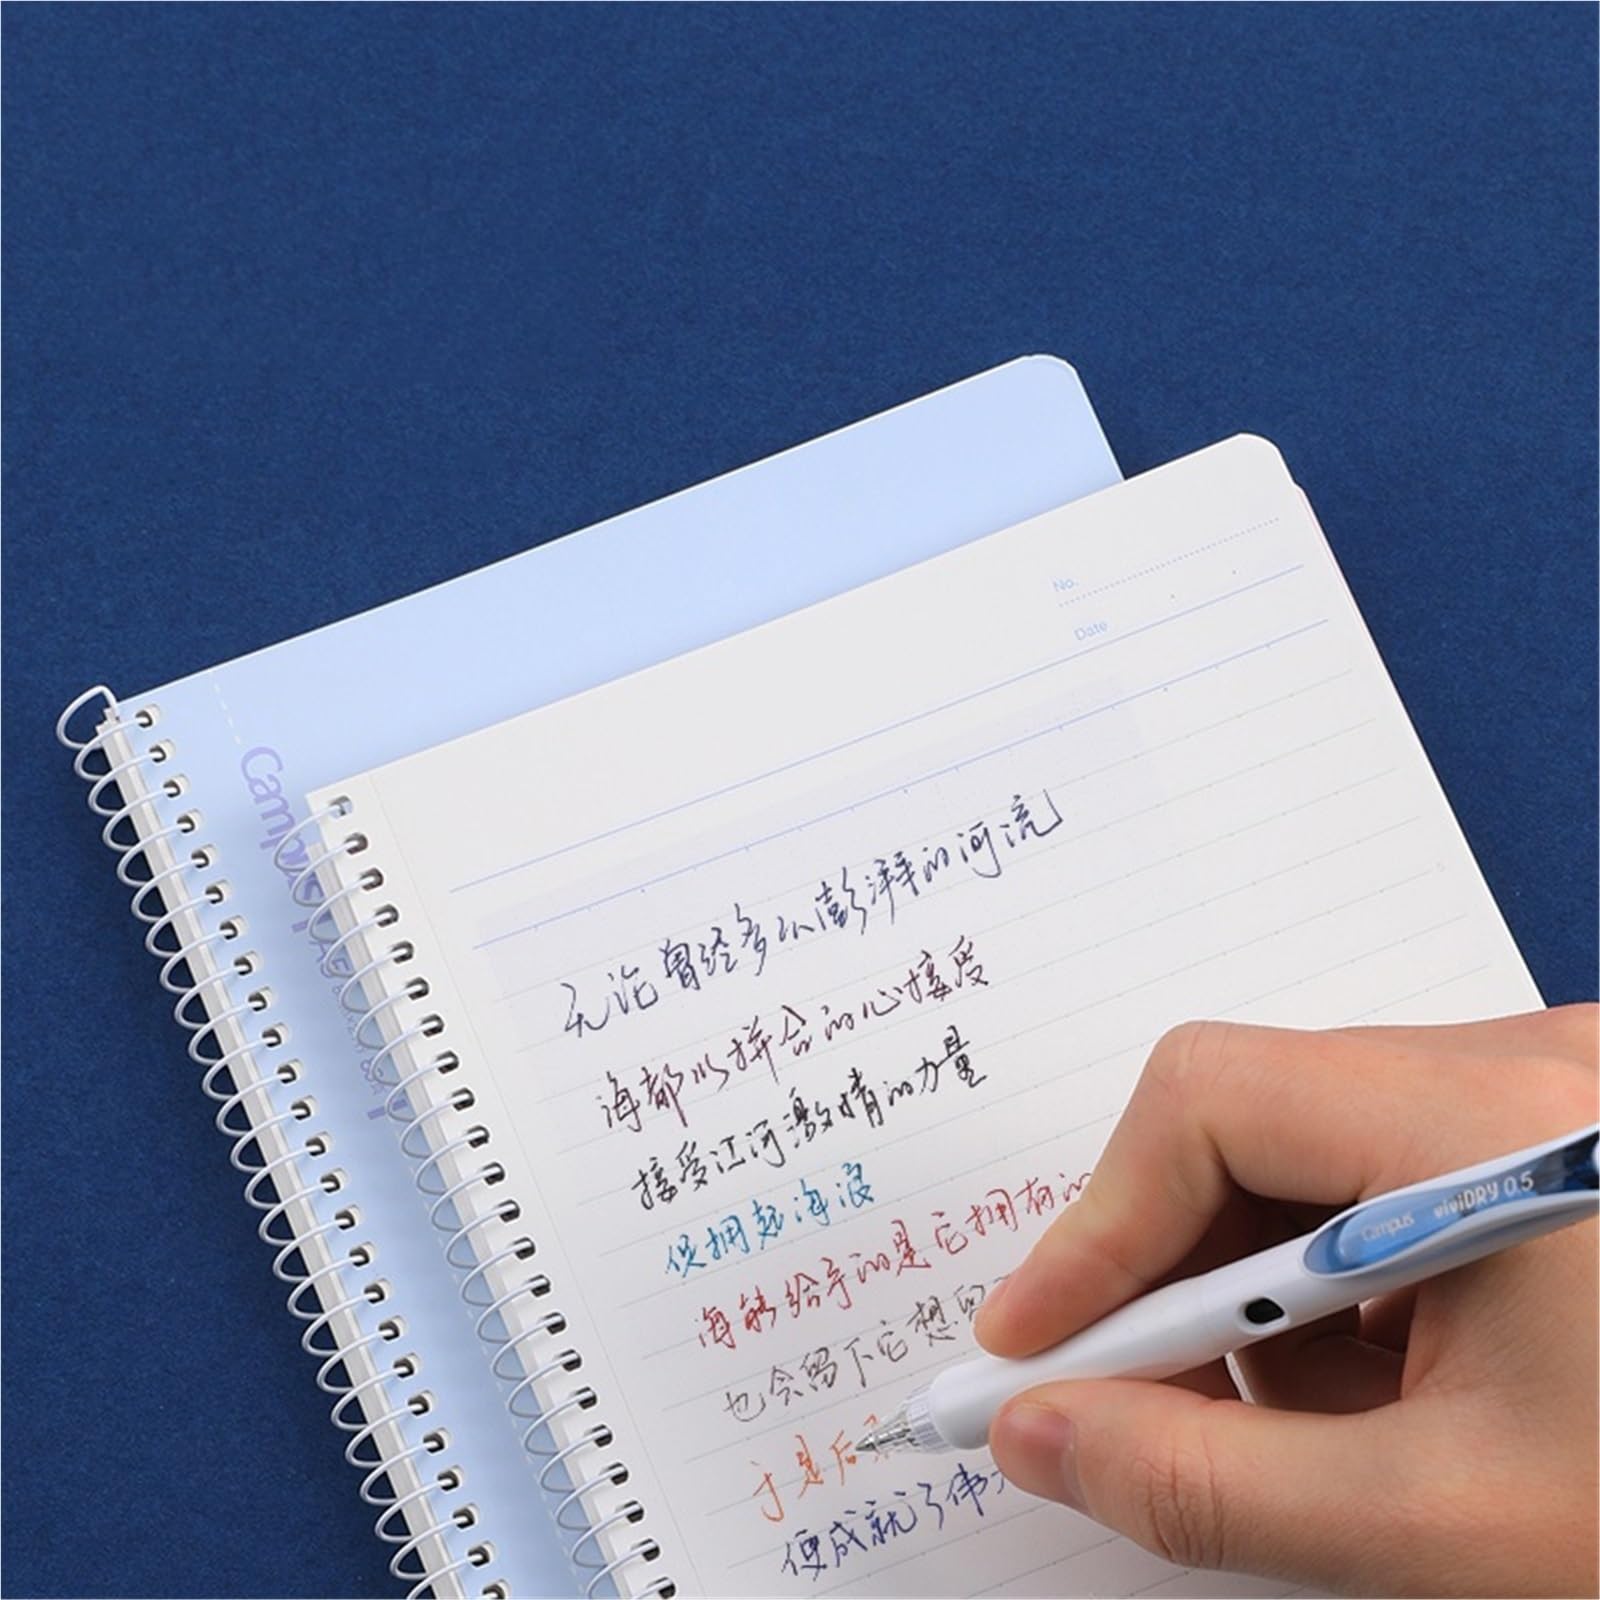 No.
Date
Campus
无论曾经多么澎湃的河流
海都以拼合的心接受
接受江河激情的力量
促拥起海浪
海能给予的是它拥有的
也会留下它想留
于是后来
便成就了伟大
Campus viviDRY 0.5